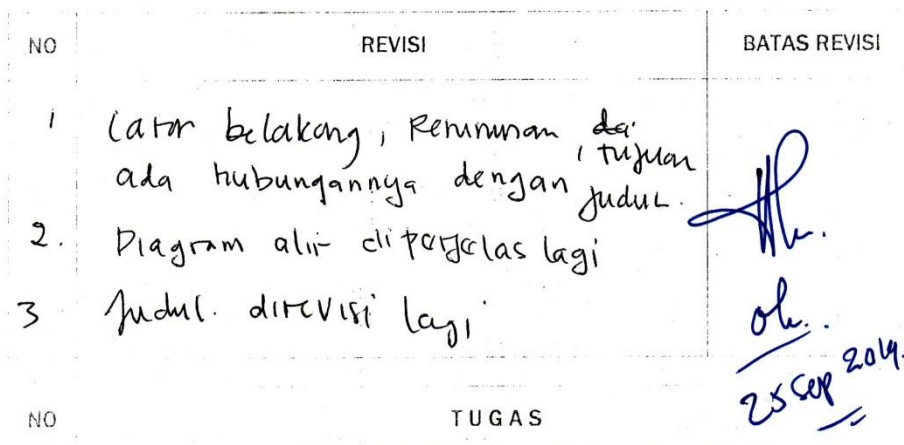 NO REVISI BATAS REVISI
1 Latar belakang, Rumusan , tujuan
ada hubungannya dengan judul.
2. Diagram alir diperjelas lagi
3 Judul. direvisi lagi
ok.
25 Sep 2019.
NO TUGAS